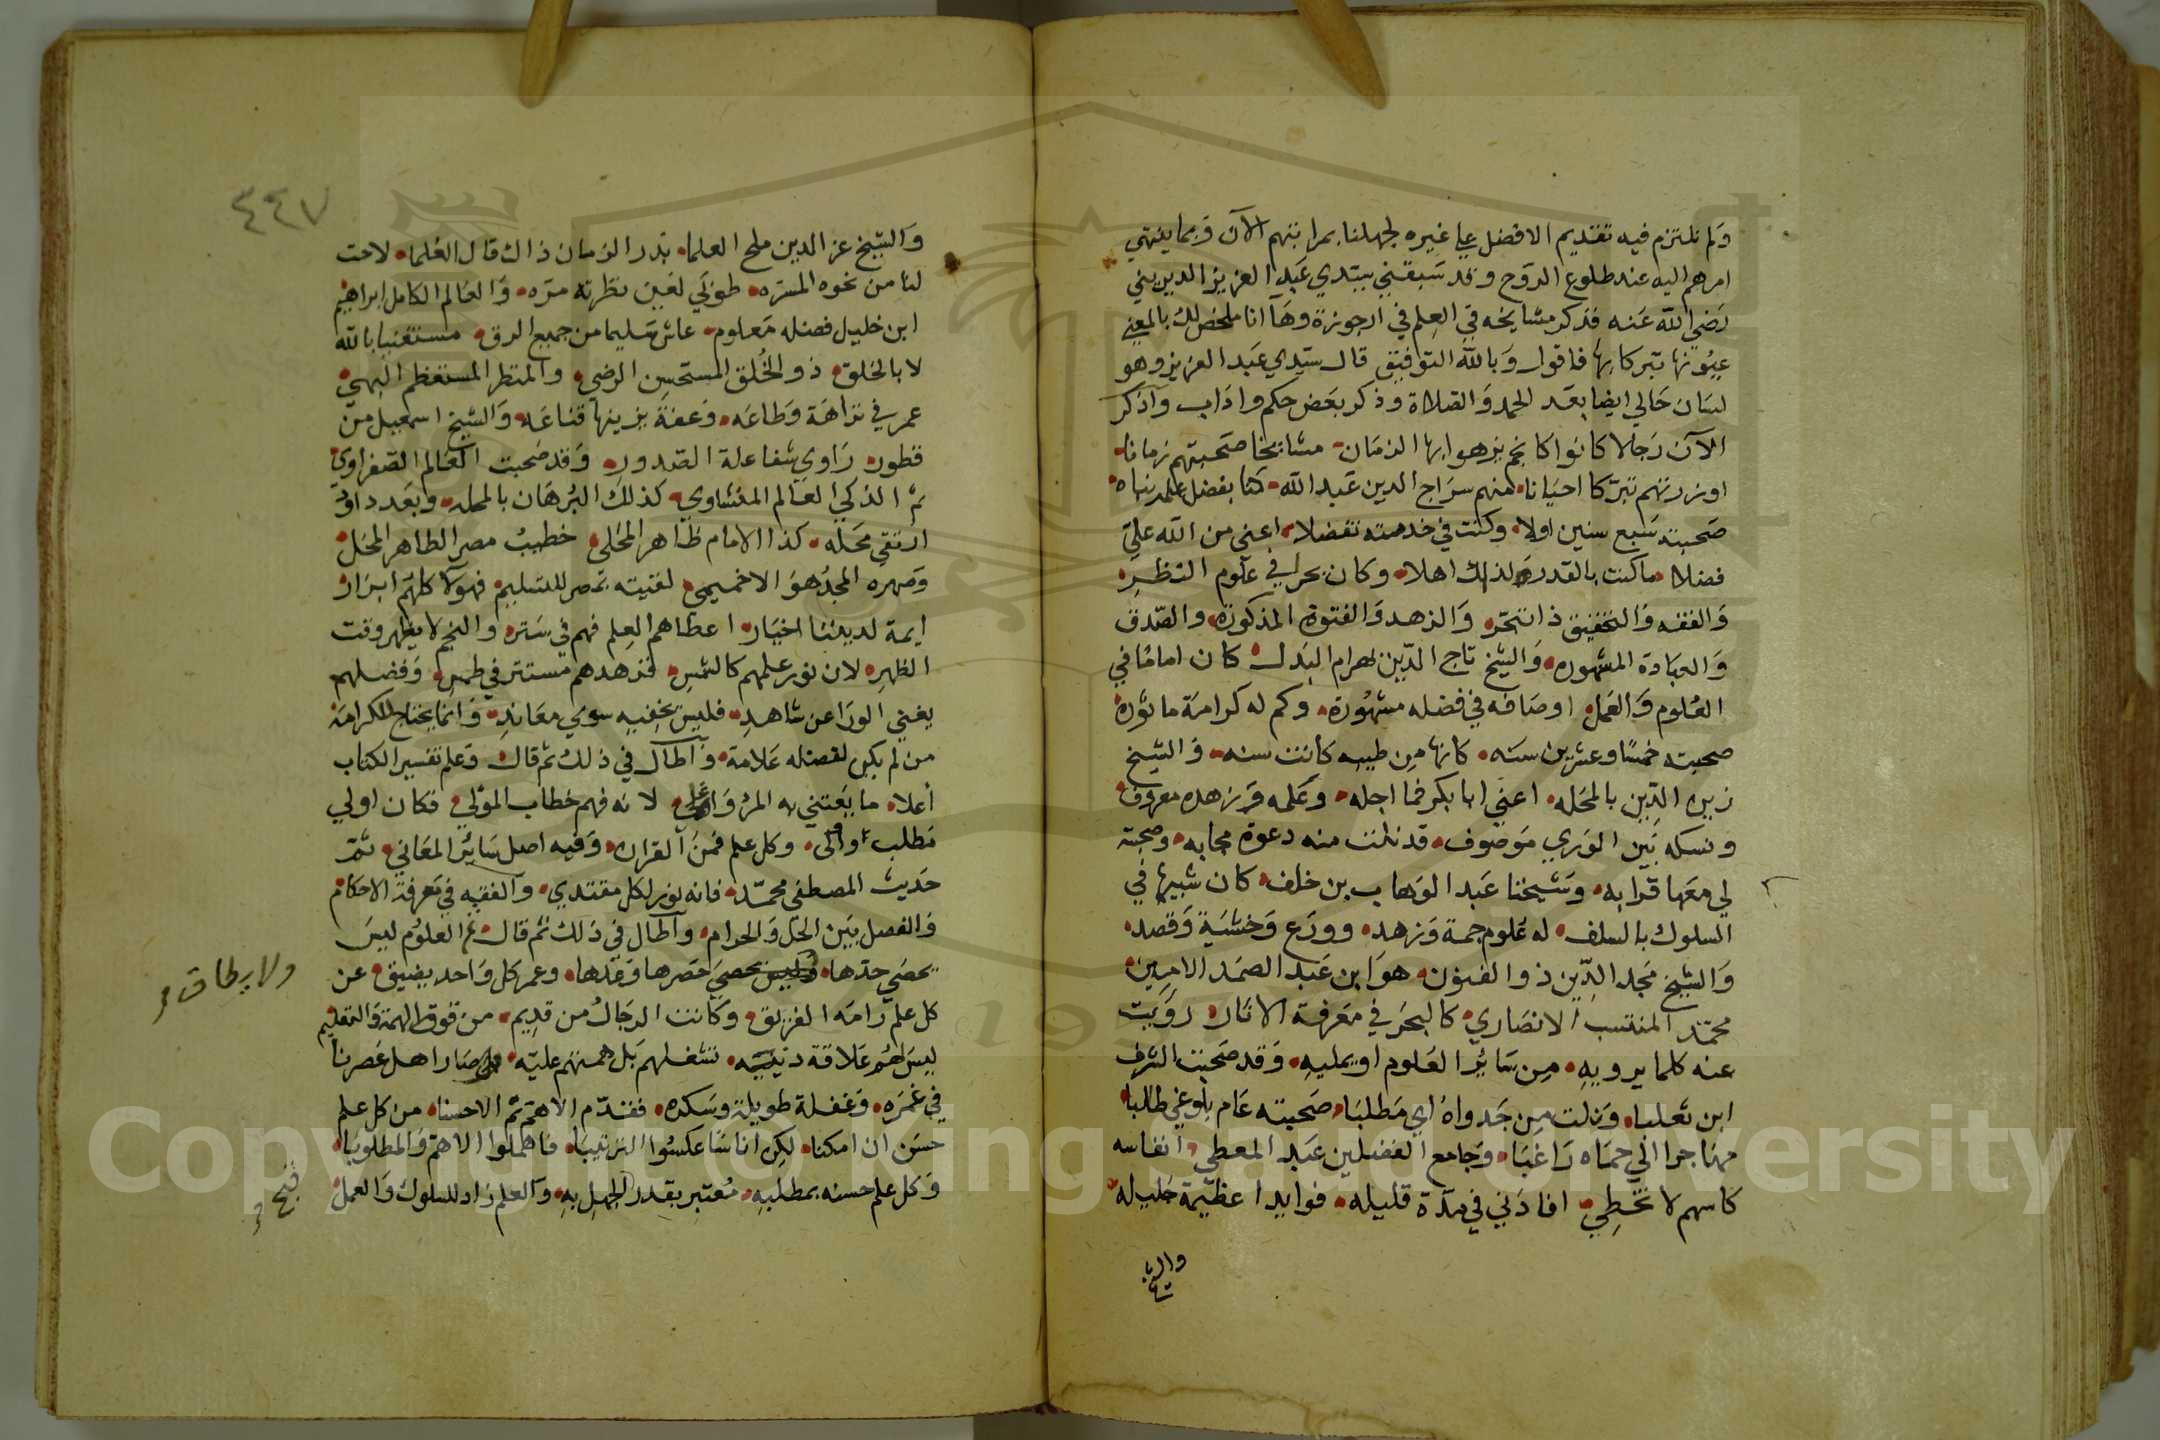 ولم نلتزم فيه تقديم الافضل على غيره لجهلنا بمراتبهم الآن وبما ينتهي
امرهم اليه عند طلوع الروح وقد سبقني سيدي عبد العزيز الديريني
رضي الله عنه فذكر مشايخه في العلم في ارجوزة وها انا ملخص لك بالمعني
عيونها تبركا بها فاقول وبالله التوفيق قال سيدي عبد العزيز وهو
لسان حالي ايضا بعد الحمد والصلاة وذكر بعض حكم واداب واذكر
الآن رجالا كانوا كانجم يزهوا بها الزمان مشايخا صحبتهم زمانا
اوزرتهم تبركا احيانا منهم سراج الدين عبد الله كفا بفضل علمه نباه
صحبته سبع سنين اولا وكنت في خدمته تفضلا اعني من الله علي
فضلا ماكنت بالقدر لذلك اهلا وكان بحرا في علوم النظر
والفقه والتحقيق ذا تبحر والزهد والفتوة المذكورة والصدق
والعبادة المشهوره والشيخ تاج الدين بهرام البدل كان اماما في
العلوم والعمل اوصافه في فضله مشهورة وكم له كرامة ماثوره
صحبته خمسا وعشرين سنه كانها من طيبه كانت سنه والشيخ
زين الدين بالمحله اعني ابا بكر فما اجله وعلمه وزهده معروف
ونسكه بين الوري موصوف قد نلت منه دعوة مجابه وصحبة
لي معها قرابه وشيخنا عبد الوهاب بن خلف كان شبيها في
السلوك بالسلف له علوم جمة وزهد وورع وخشية وقصد
والشيخ مجد الدين ذو الفنون هو ابن عبد الصمد الامين
محمد المنتسب الانصاري كالبحر في معرفة الاثار رويت
عنه كلما يرويه من سائر العلوم او يمليه وقد صحبت الشرف
ابن ثعلبا ونلت من جدواه اي مطلبا صحبته عام بلوغي طالبا
مهاجرا الي حماه راغبا وجامع الفضلين عبد المعطي انفاسه
كاسهم لا تخطي افادني في مدة قليله فوايدا عظيمة جليله
والشيخ
٤٤٧
والشيخ عز الدين ملح العلما بدر الزمان ذاك قال العلما لاحت
لنا من نحوه المسره طوبي لعين نظرته مره والعالم الكامل ابراهيم
ابن خليل فضله معلوم عاش سليما من جميع الرق مستغنيا بالله
لا بالخلق ذو الخلق المستحسن الرضي والمنظر المستعظم البهي
عمر في نزاهة وطاعه وعفة يزينها قناعه والشيخ اسمعيل من
قطور راوي شفا علة الصدور وقد صحبت العالم الصفراوي
ثم الذكي العالم المنشاوي كذلك البرهان بالمحله وبعد ذا قد
ارتقي محله كذا الامام طاهر المحلي خطيب مصر الطاهر المحل
وصهره المجد هو الاخميمي لقيته بمصر للتسليم فهولا كلهم ابرار
ايمة لديننا اخيار اعطاهم العلم فهم في ستره والنجم لا يظهر وقت
الظهره لان نور علمهم كالشمس فزهدهم مستتر في طمس وفضلهم
يغني الورا عن شاهد فليس يخفيه سوي معاند وانما يحتاج للكرامة
من لم يكن لفضله علامة واطال في ذلك ثم قال وعلم تفسير الكتاب
أعلا ما يعتني به المرء لانه فهم خطاب المولي فكان اولي
مطلب واولى وكل علم فمن القران وفيه اصل سائر المعاني ثم
حديث المصطفي محمد فانه نور لكل مقتدي والفقيه في معرفة الاحكام
والفصل بين الحل والحرام واطال في ذلك ثم قال ثم العلوم ليس
يحصي حدها وليس يحصي حصرها وعدها وعمر كل واحد يضيق عن
ولا يطاق
كل علم رامه الفريق وكانت الرجال من قديم من فوق الهمة والتعليم
ليس لهم علاقة دنييه تشغلهم بل همتهم عليه صار اهل عصرنا
في غمره وغفلة طويلة وسكره فقدم الاهم ثم الاحسنا من كل علم
حسن ان امكنا لكن اناسا عكسوا الترتيبا فاهملوا الاهم والمطلوبا
وكل علم حسنه بمطلبه معتبر بقدر الجهل به والعلم زاد للسلوك والعمل
قبح
Copyright © King Saud University
1957